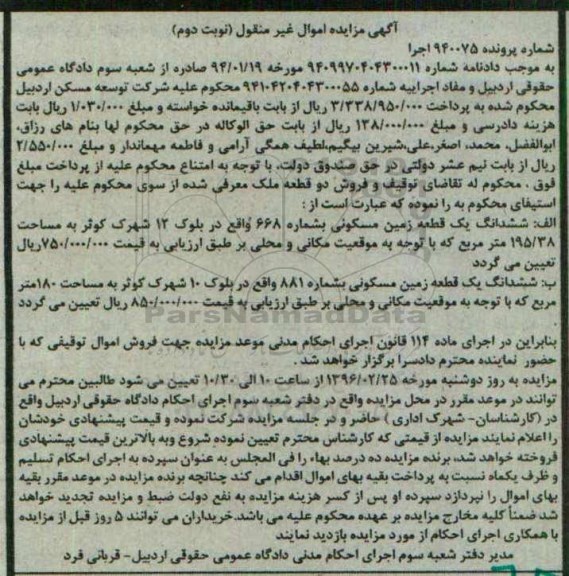 آگهی مزایده اموال غیر منقول (نوبت دوم)
شماره پرونده ۹۴۰۰۷۵ اجرا
به موجب دادنامه شماره ۹۴۰۹۹۷۰۴۰۴۳۰۰۰۱۱ مورخه ۹۴/۰۱/۱۹ صادره از شعبه سوم دادگاه عمومی
حقوقی اردبیل و مفاد اجراییه شماره ۹۴۱۰۴۲۰۴۰۴۳۰۰۰۵۵ محکوم علیه شرکت توسعه مسکن اردبیل
محکوم شده به پرداخت ۳/۳۳۸/۹۵۰/۰۰۰ ریال از بابت باقیمانده خواسته و مبلغ ۱/۰۳۰/۰۰۰ ریال بابت
هزینه دادرسی و مبلغ ۱۳۸/۰۰۰/۰۰۰ ریال از بابت حق الوکاله در حق محکوم لها بنام های رزاق،
ابوالفضل، محمد، اصغر،علی،شیرین بیگیم،لطیف همگی آرامی و فاطمه مهماندار و مبلغ ۲/۵۵۰/۰۰۰
ریال از بابت نیم عشر دولتی در حق صندوق دولت، با توجه به امتناع محکوم علیه از پرداخت مبلغ
فوق ، محکوم له تقاضای توقیف و فروش دو قطعه ملک معرفی شده از سوی محکوم علیه را جهت
استیفای محکوم به را نموده که عبارت است از :
الف: ششدانگ یک قطعه زمین مسکونی بشماره ۶۶۸ واقع در بلوک ۱۲ شهرک کوثر به مساحت
۱۹۵/۳۸ متر مربع که با توجه به موقعیت مکانی و محلی بر طبق ارزیابی به قیمت ۷۵۰/۰۰۰/۰۰۰ریال
تعیین می گردد
ب: ششدانگ یک قطعه زمین مسکونی بشماره ۸۸۱ واقع در بلوک ۱۰ شهرک کوثر به مساحت ۱۸۰متر
مربع که با توجه به موقعیت مکانی و محلی بر طبق ارزیابی به قیمت ۸۵۰/۰۰۰/۰۰۰ ریال تعیین می گردد
ParsNamadData
بنابراین در اجرای ماده ۱۱۴ قانون اجرای احکام مدنی موعد مزایده جهت فروش اموال توقیفی که با
حضور نماینده محترم دادسرا برگزار خواهد شد .
مزایده به روز دوشنبه مورخه ۱۳۹۶/۰۲/۲۵ از ساعت ۱۰ الی ۱۰/۳۰ تعیین می شود طالبین محترم می
توانند در موعد مقرر در محل مزایده واقع در دفتر شعبه سوم اجرای احکام دادگاه حقوقی اردبیل واقع
در (کارشناسان- شهرک اداری ) حاضر و در جلسه مزایده شرکت نموده و قیمت پیشنهادی خودشان
را اعلام نمایند مزایده از قیمتی که کارشناس محترم تعیین نموده شروع وبه بالاترین قیمت پیشنهادی
فروخته خواهد شد، برنده مزایده ده درصد بهاء را فی المجلس به عنوان سپرده به اجرای احکام تسلیم
و ظرف یکماه نسبت به پرداخت بقیه بهای اموال اقدام می کند چنانچه برنده مزایده در موعد مقرر بقیه
بهای اموال را نپردازد سپرده او پس از کسر هزینه مزایده به نفع دولت ضبط و مزایده تجدید خواهد
شد ضمناً کلیه مخارج مزایده بر عهده محکوم علیه می باشد.خریداران می توانند ۵ روز قبل از مزایده
با همکاری اجرای احکام از مورد مزایده بازدید نمایند
مدیر دفتر شعبه سوم اجرای احکام مدنی دادگاه عمومی حقوقی اردبیل- قربانی فرد